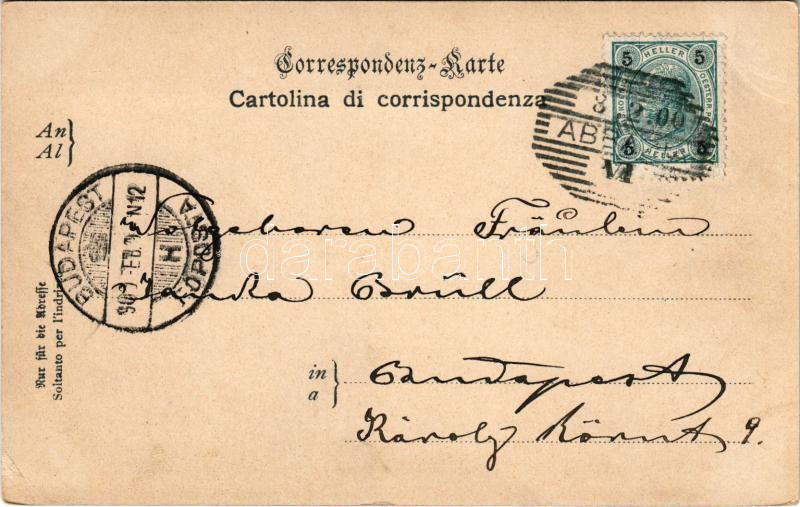 Correspondenz-Karte
Cartolina di corrispondenza
5 HELLER 5
5 HELLER 5
8 2.00
AB
An
Al
BUDAPEST
FŐPOSTA
H
N12
Fräulein
Janka Brüll
in
a
Budapest
Károly Körut 9.
Nur für die Adresse
Soltanto per l'indiri
darabanth